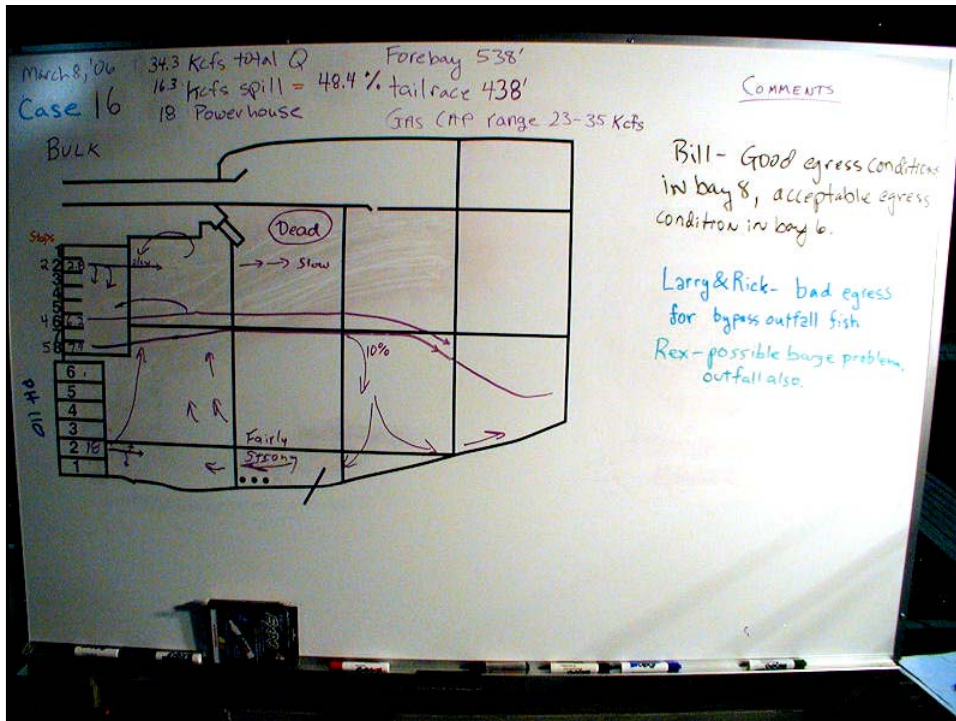 March 8, '06
Case 16
34.3 Kcfs total Q
16.3 Kcfs spill = 48.4 %
18 Powerhouse
Forebay 538'
tailrace 438'
GAS CAP range 23-35 Kcfs
COMMENTS
BULK
Bill- Good egress conditions
in bay 8, acceptable egress
condition in bay 6.
Larry & Rick- bad egress
for bypass outfall fish
Rex- possible barge problem,
outfall also.
Stops
Dead
Slow
2 2
5
4 6
5 8
10%
6
5
4
3
2 18
1
Fairly
Strong